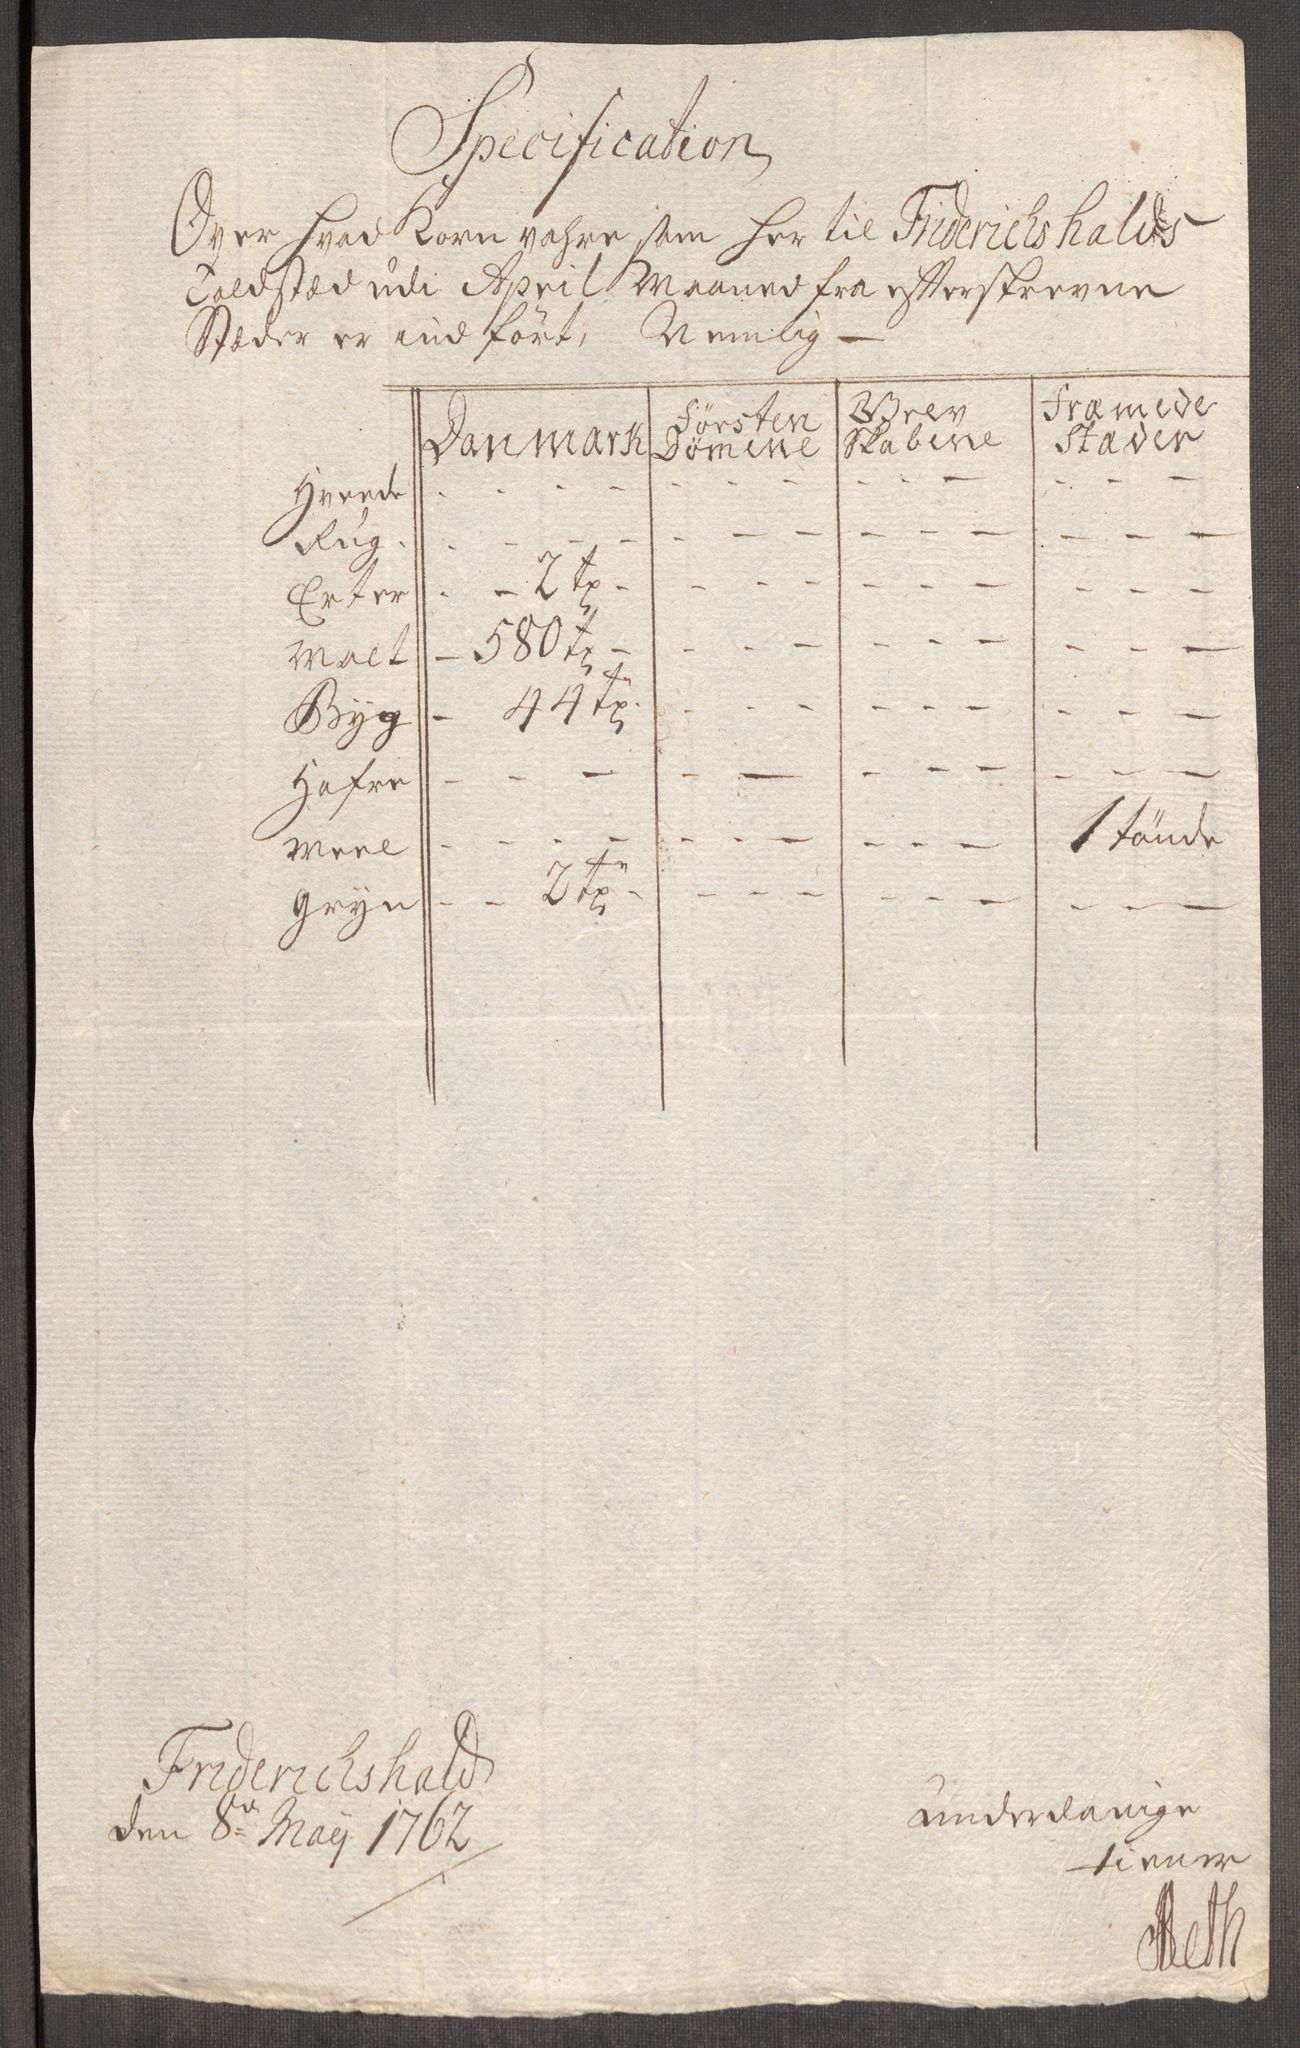 Specification
Over hvad Korn vahre som her til Friderichshalds
Toldstæd udi April Maaned fra efterskrevne
Stæder er ind ført, Nemlig —
Danmark Førsten Dømene Grev Skabene Fræmede Stæder
Hvede - - - - - - - - - - - - -
Rug - - - - - - - - - - - - -
Erter - - 2 tr - - - - - - - - - -
Malt - 580 tr - - - - - - - - - -
Byg - 44 tr - - - - - - - - -
Hafre - - - - - - - - - - -
Meel - - - - - - - - - - 1 tönde
Gryn - - 2 tr - - - - - - - - - -
Friderichshald
den 8de May 1762
underdanige
tiener